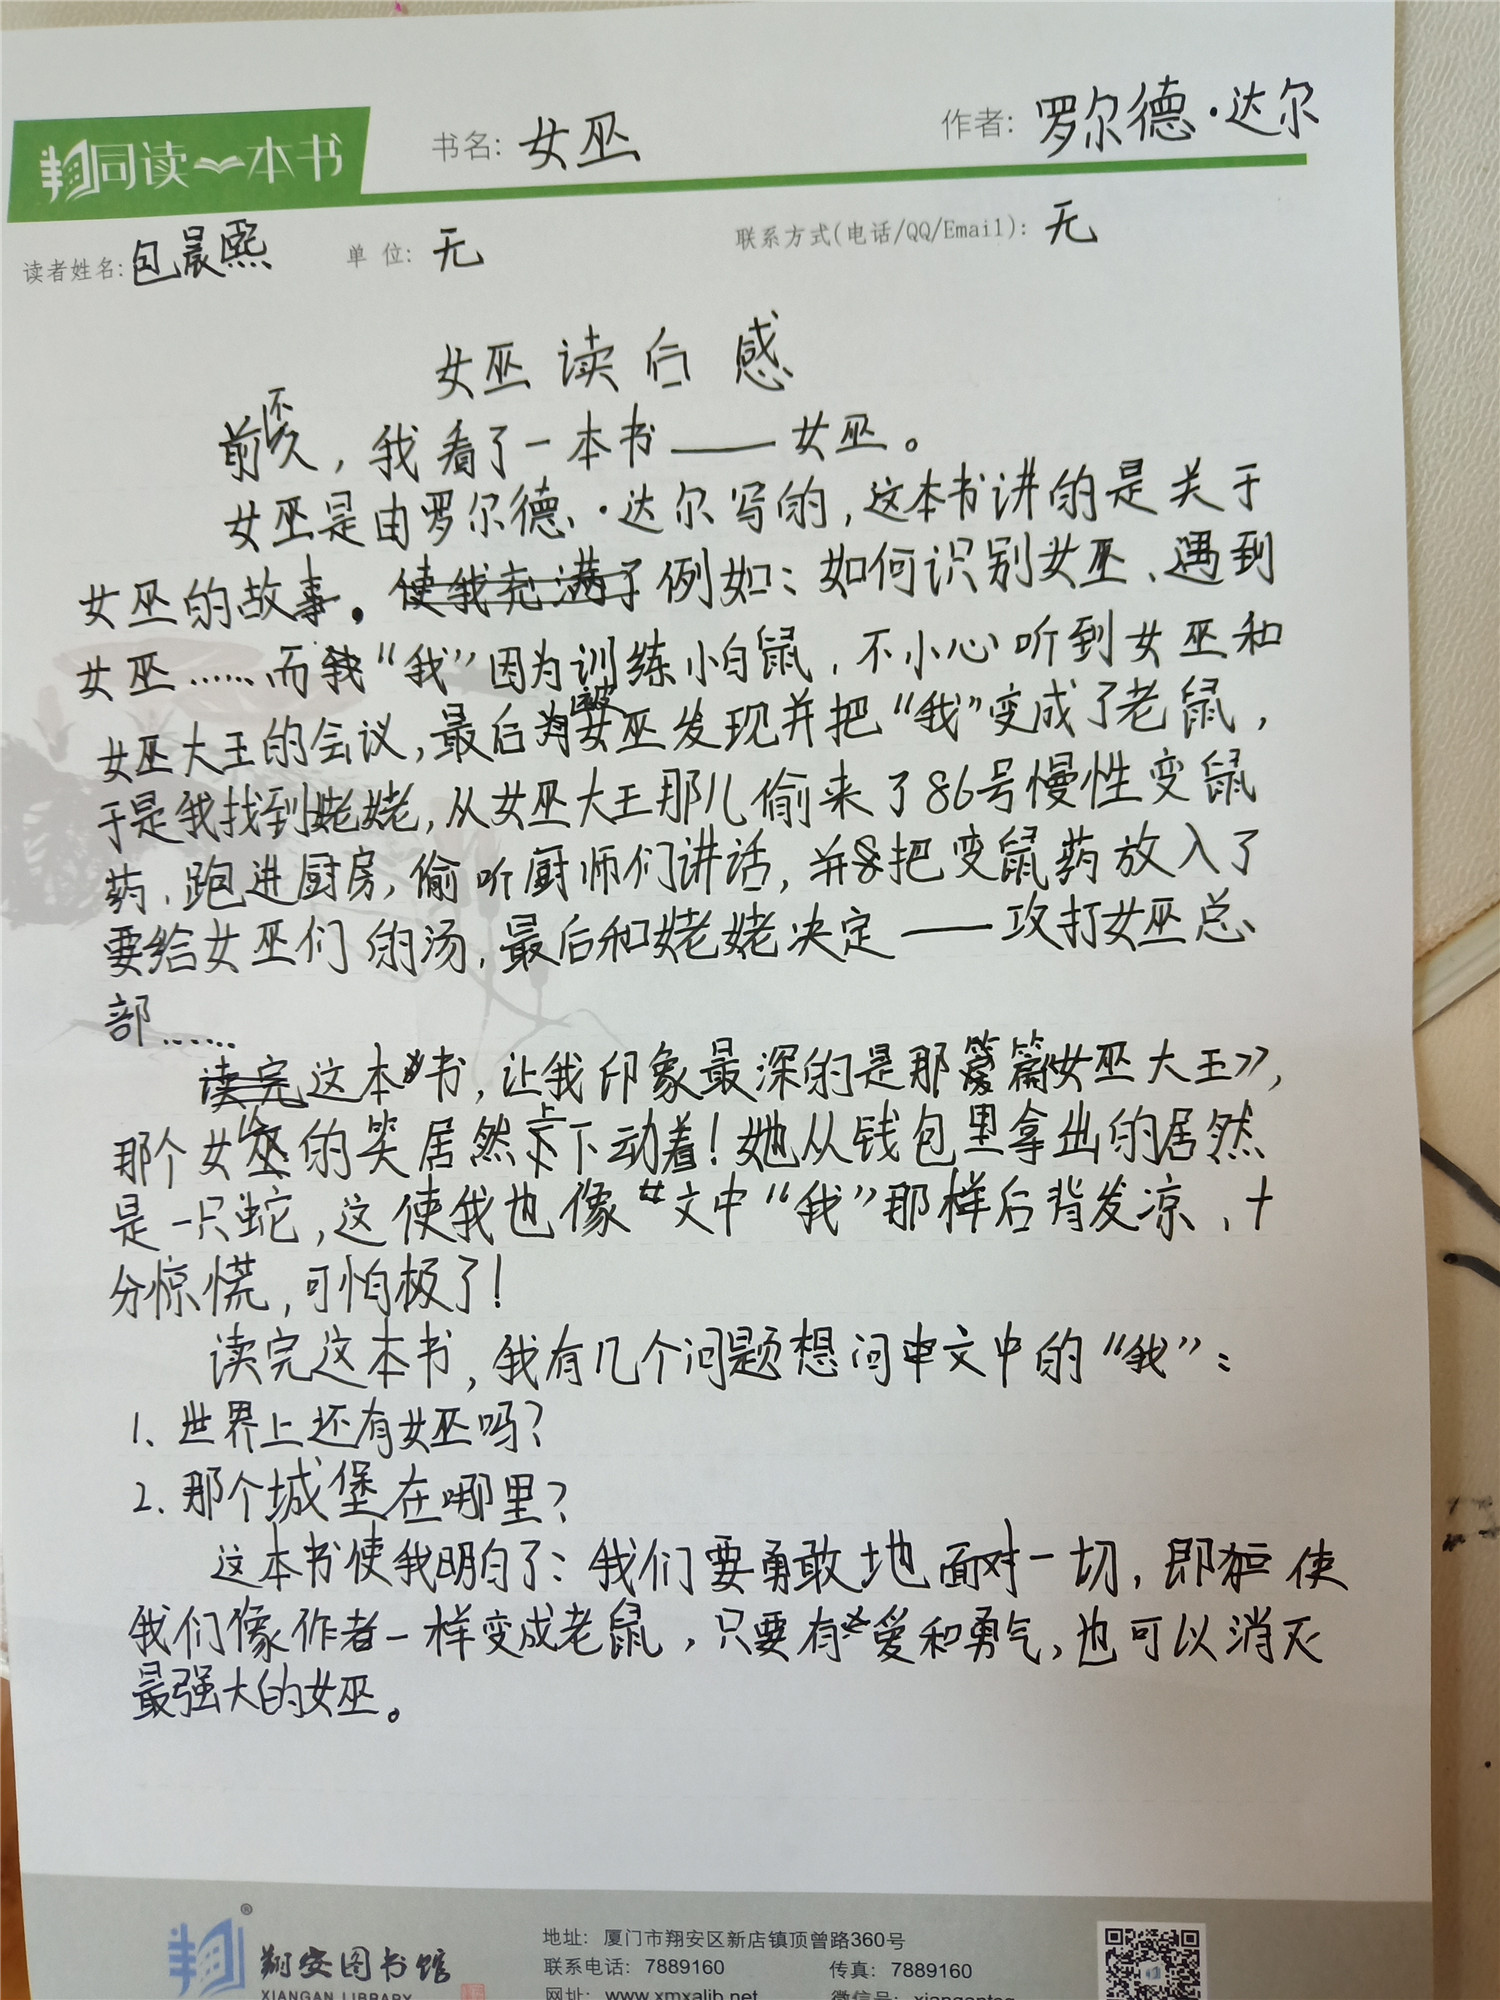 同读一本书 书名: 女巫 作者: 罗尔德·达尔
读者姓名: 包晨熙 单 位: 无 联系方式(电话/QQ/Email): 无
女巫读后感
前不久，我看了一本书——女巫。
女巫是由罗尔德·达尔写的，这本书讲的是关于
女巫的故事。例如：如何识别女巫、遇到
女巫……而“我”因为训练小白鼠，不小心听到女巫和
女巫大王的会议，最后被女巫发现并把“我”变成了老鼠，
于是我找到姥姥，从女巫大王那儿偷来了86号慢性变鼠
药，跑进厨房，偷听厨师们讲话，并把变鼠药放入了
要给女巫们的汤，最后和姥姥决定——攻打女巫总
部……
这本书，让我印象最深的是那篇《女巫大王》，
那个女巫的笑居然上下动着！她从钱包里拿出的居然
是一只蛇，这使我也像文中“我”那样后背发凉、十
分惊慌，可怕极了！
读完这本书，我有几个问题想问文中的“我”：
1、世界上还有女巫吗？
2、那个城堡在哪里？
这本书使我明白了：我们要勇敢地面对一切，即使
我们像作者一样变成老鼠，只要有爱和勇气，也可以消灭
最强大的女巫。
翔安图书馆 ®
XIANGAN LIBRARY
地址: 厦门市翔安区新店镇顶曾路360号
联系电话: 7889160 传真: 7889160
网址: www.xmxalib.net 微信号: